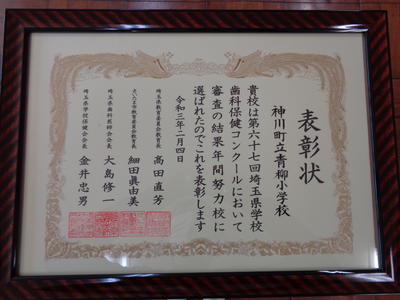 表彰状
神川町立青柳小学校
貴校は第六十七回埼玉県学校
歯科保健コンクールにおいて
審査の結果年間努力校に
選ばれたのでこれを表彰します
令和三年二月四日
埼玉県教育委員会教育長 高田直芳
さいたま市教育委員会教育長 細田眞由美
埼玉県歯科医師会会長 大島修一
埼玉県学校保健会会長 金井忠男